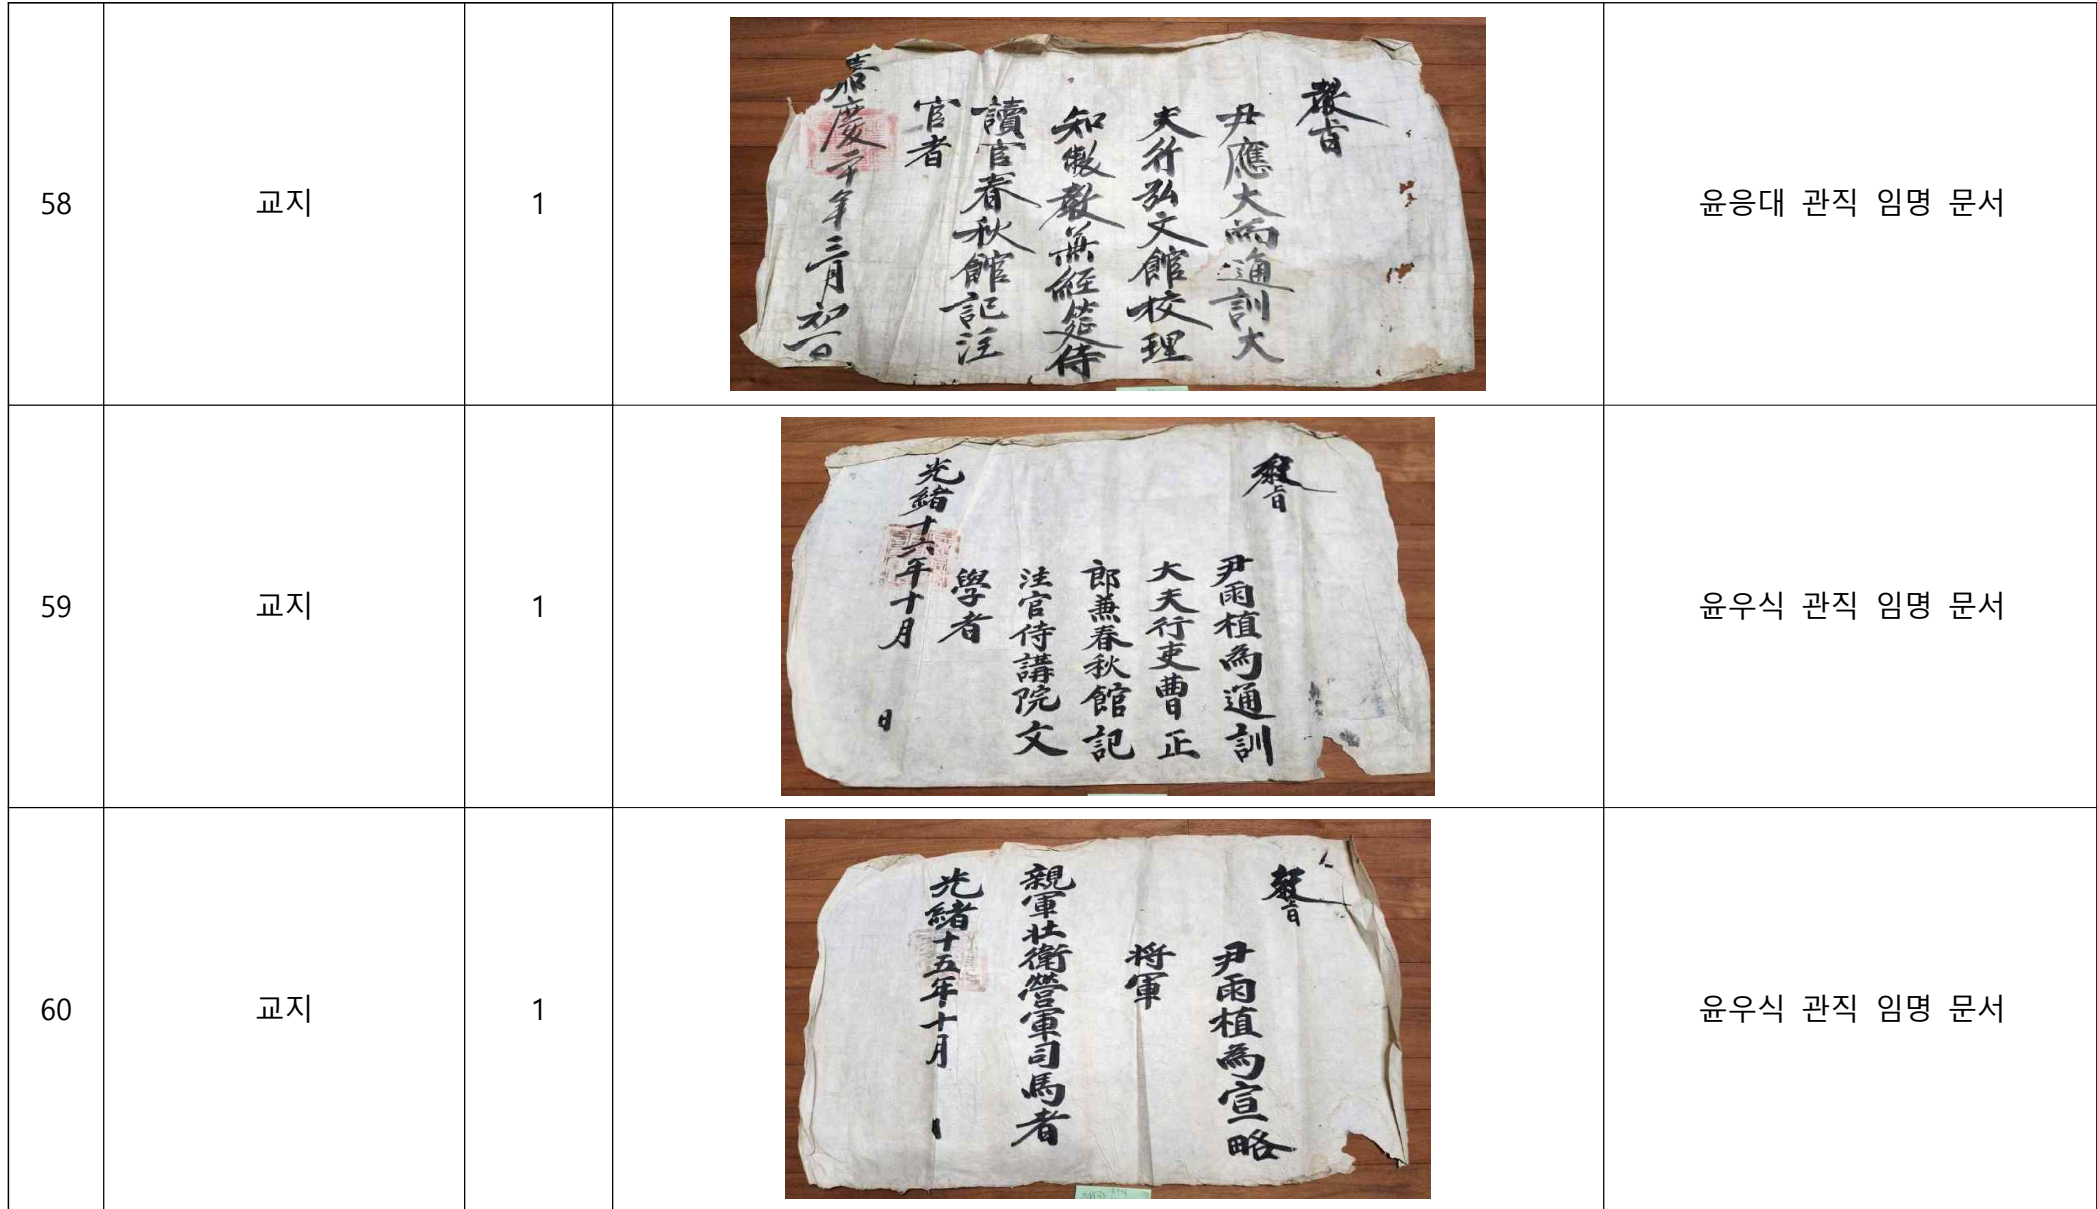 58
교지
1
敎旨
尹應大爲通訓大
夫行弘文館校理
知製敎兼經筵侍
讀官春秋館記注
官者
嘉慶二十年三月初一日
윤응대 관직 임명 문서
59
교지
1
敎旨
尹雨植爲通訓
大夫行吏曹正
郎兼春秋館記
注官侍講院文
學者
光緖十六年十月 日
윤우식 관직 임명 문서
60
교지
1
敎旨
尹雨植爲宣略
將軍
親軍壯衛營軍司馬者
光緖十五年十月 日
윤우식 관직 임명 문서